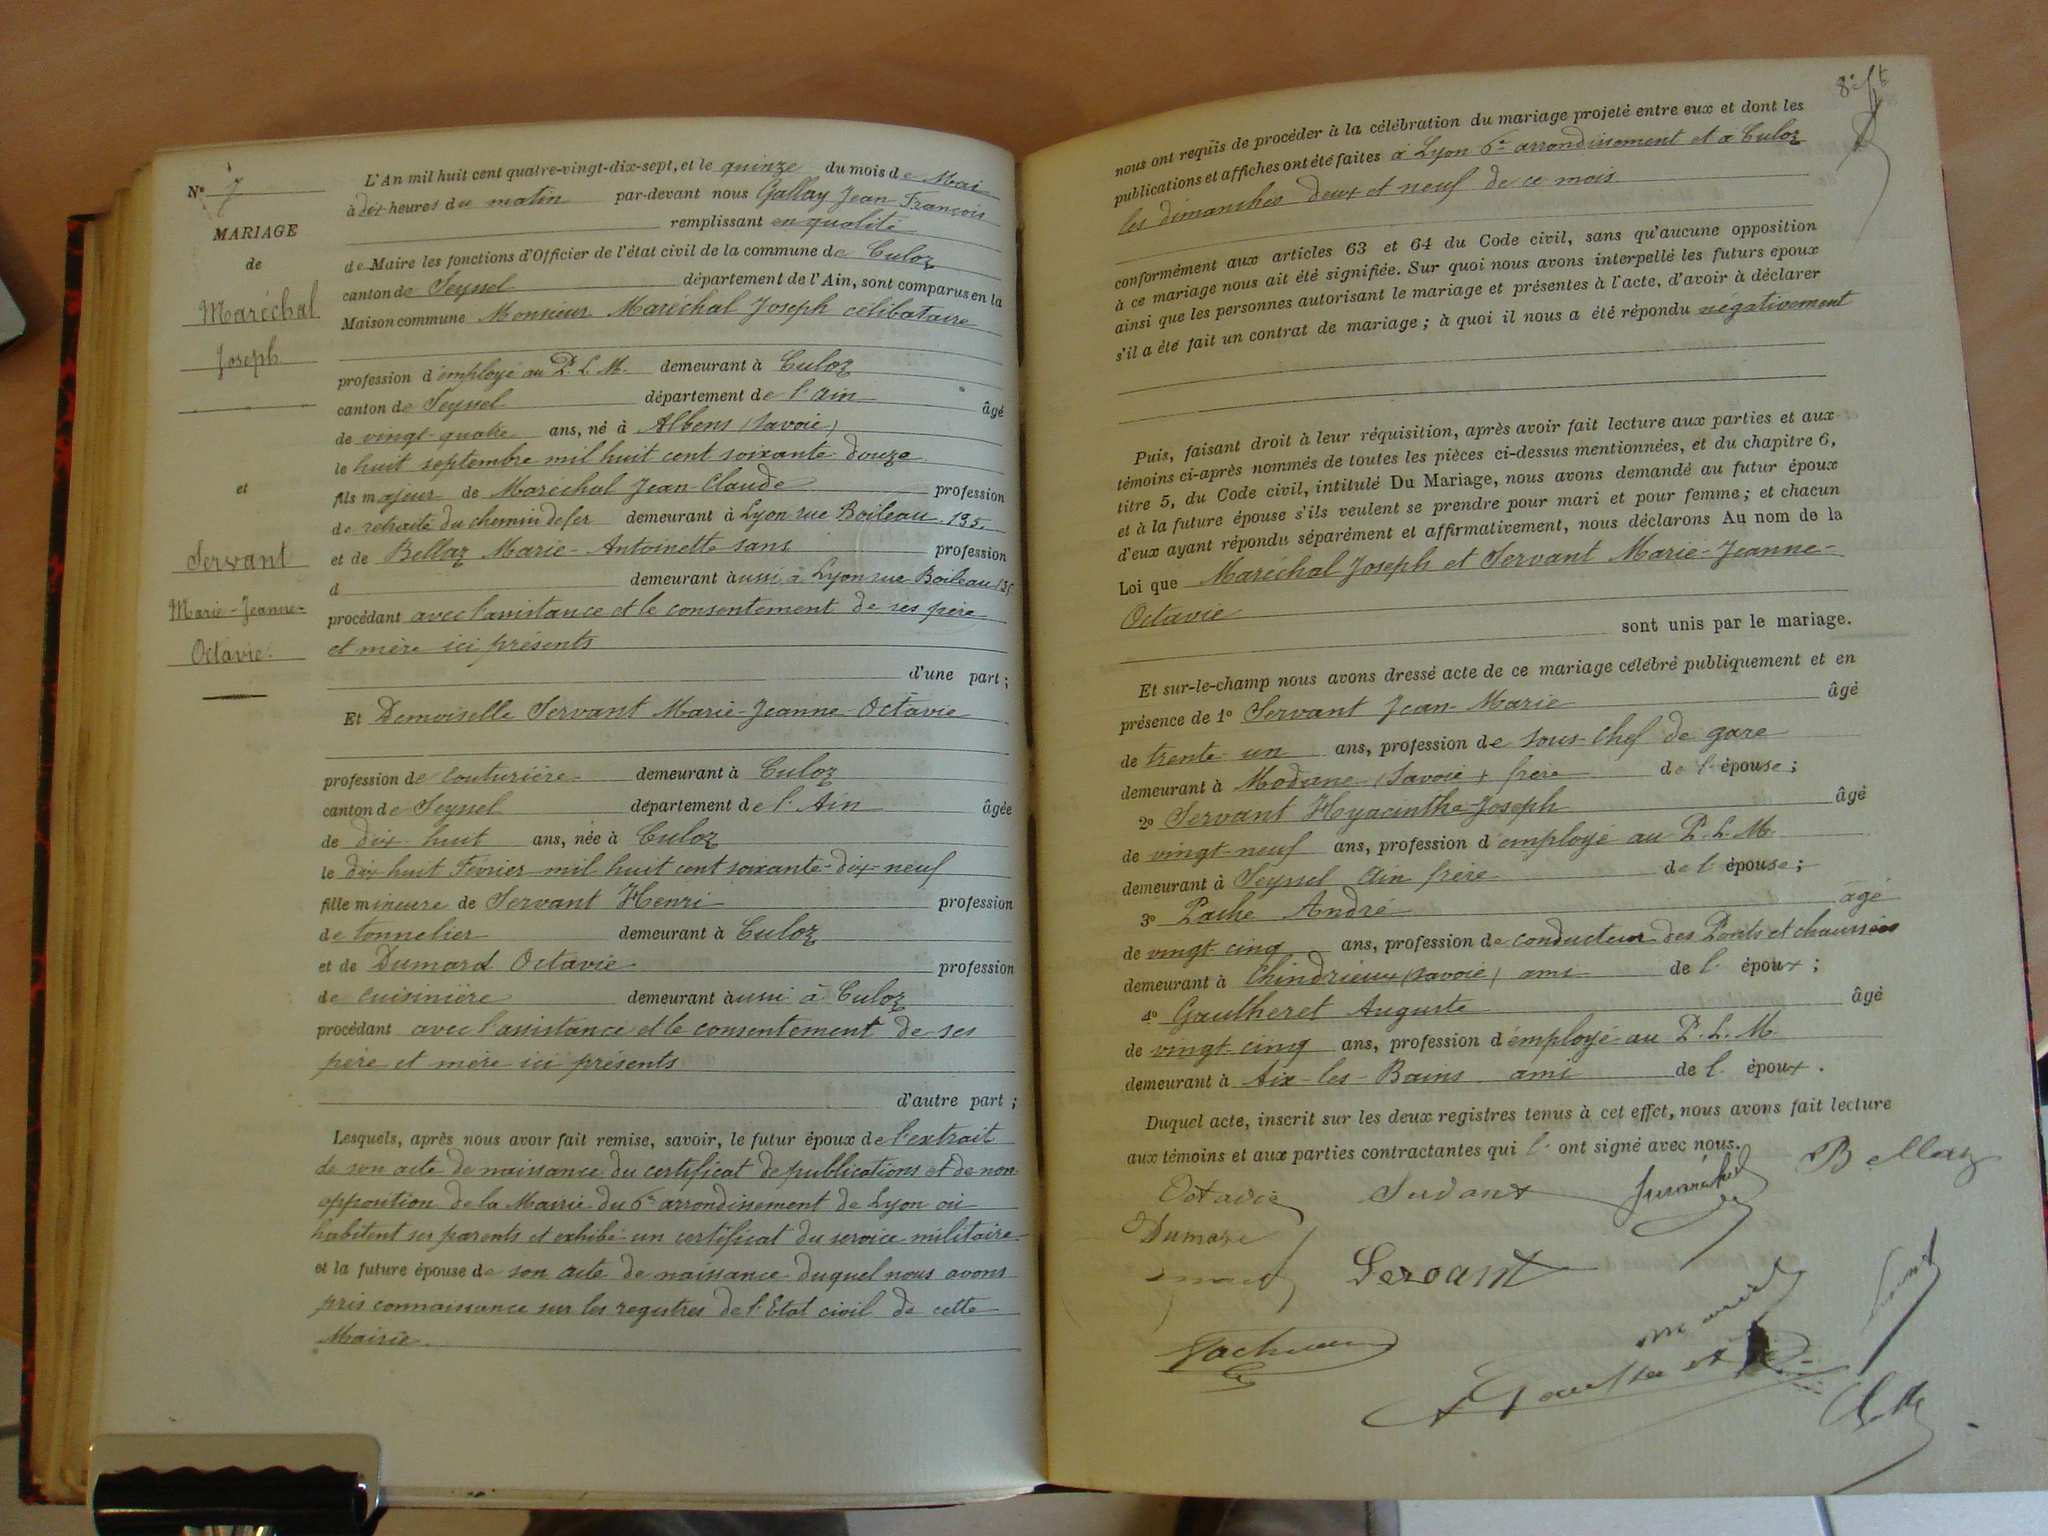 N° 7
MARIAGE
de
Maréchal
Joseph
et
Servant
Marie-Jeanne-
Octavie.
L'An mil huit cent quatre-vingt-dix-sept, et le quinze du mois de Mai
à dix heures du matin par-devant nous Gallay Jean François
remplissant en qualité
de Maire les fonctions d'Officier de l'état civil de la commune de Culoz
canton de Seyssel département de l'Ain, sont comparus en la
Maison commune Monsieur Maréchal Joseph célibataire
profession d'employé au P. L. M. demeurant à Culoz
canton de Seyssel département de l'Ain âgé
de vingt-quatre ans, né à Albens (Savoie)
le huit septembre mil huit cent soixante-douze
fils majeur de Maréchal Jean-Claude profession
de retraité du chemin de fer demeurant à Lyon rue Boileau, 135.
et de Bellaz Marie-Antoinette sans profession
d demeurant aussi à Lyon rue Boileau 135
procédant avec l'assistance et le consentement de ses père
et mère ici présents
d'une part ;
Et Demoiselle Servant Marie-Jeanne-Octavie
profession de couturière demeurant à Culoz
canton de Seyssel département de l'Ain âgée
de dix-huit ans, née à Culoz
le dix-huit Février mil huit cent soixante-dix-neuf
fille mineure de Servant Henri profession
de tonnelier demeurant à Culoz
et de Dumard Octavie profession
de cuisinière demeurant aussi à Culoz
procédant avec l'assistance et le consentement de ses
père et mère ici présents
d'autre part ;
Lesquels, après nous avoir fait remise, savoir, le futur époux de l'extrait
de son acte de naissance du certificat de publications et de non
opposition de la Mairie du 6e arrondissement de Lyon où
habitent ses parents et exhibé un certificat du service militaire
et la future épouse de son acte de naissance duquel nous avons
pris connaissance sur les registres de l'Etat civil de cette
Mairie.
8e
nous ont requis de procéder à la célébration du mariage projeté entre eux et dont les
publications et affiches ont été faites à Lyon 6e arrondissement et à Culoz
les dimanches deux et neuf de ce mois
conformément aux articles 63 et 64 du Code civil, sans qu'aucune opposition
à ce mariage nous ait été signifiée. Sur quoi nous avons interpellé les futurs époux
ainsi que les personnes autorisant le mariage et présentes à l'acte, d'avoir à déclarer
s'il a été fait un contrat de mariage ; à quoi il nous a été répondu négativement
Puis, faisant droit à leur réquisition, après avoir fait lecture aux parties et aux
témoins ci-après nommés de toutes les pièces ci-dessus mentionnées, et du chapitre 6,
titre 5, du Code civil, intitulé Du Mariage, nous avons demandé au futur époux
et à la future épouse s'ils veulent se prendre pour mari et pour femme ; et chacun
d'eux ayant répondu séparément et affirmativement, nous déclarons Au nom de la
Loi que Maréchal Joseph et Servant Marie-Jeanne-
Octavie
sont unis par le mariage.
Et sur-le-champ nous avons dressé acte de ce mariage célébré publiquement et en
présence de 1° Servant Jean-Marie âgé
de trente-un ans, profession de sous-chef de gare
demeurant à Modane (Savoie) frère de l'épouse ;
2° Servant Hyacinthe-Joseph âgé
de vingt-neuf ans, profession d'employé au P. L. M.
demeurant à Seyssel Ain frère de l'épouse ;
3° Pache André âgé
de vingt-cinq ans, profession de conducteur des Ponts et chaussées
demeurant à Chindrieux (Savoie) ami de l'époux ;
4° Gautheret Auguste âgé
de vingt-cinq ans, profession d'employé au P. L. M.
demeurant à Aix-les-Bains ami de l'époux.
Duquel acte, inscrit sur les deux registres tenus à cet effet, nous avons fait lecture
aux témoins et aux parties contractantes qui l'ont signé avec nous.
Octavie Servant Bellaz
Servant